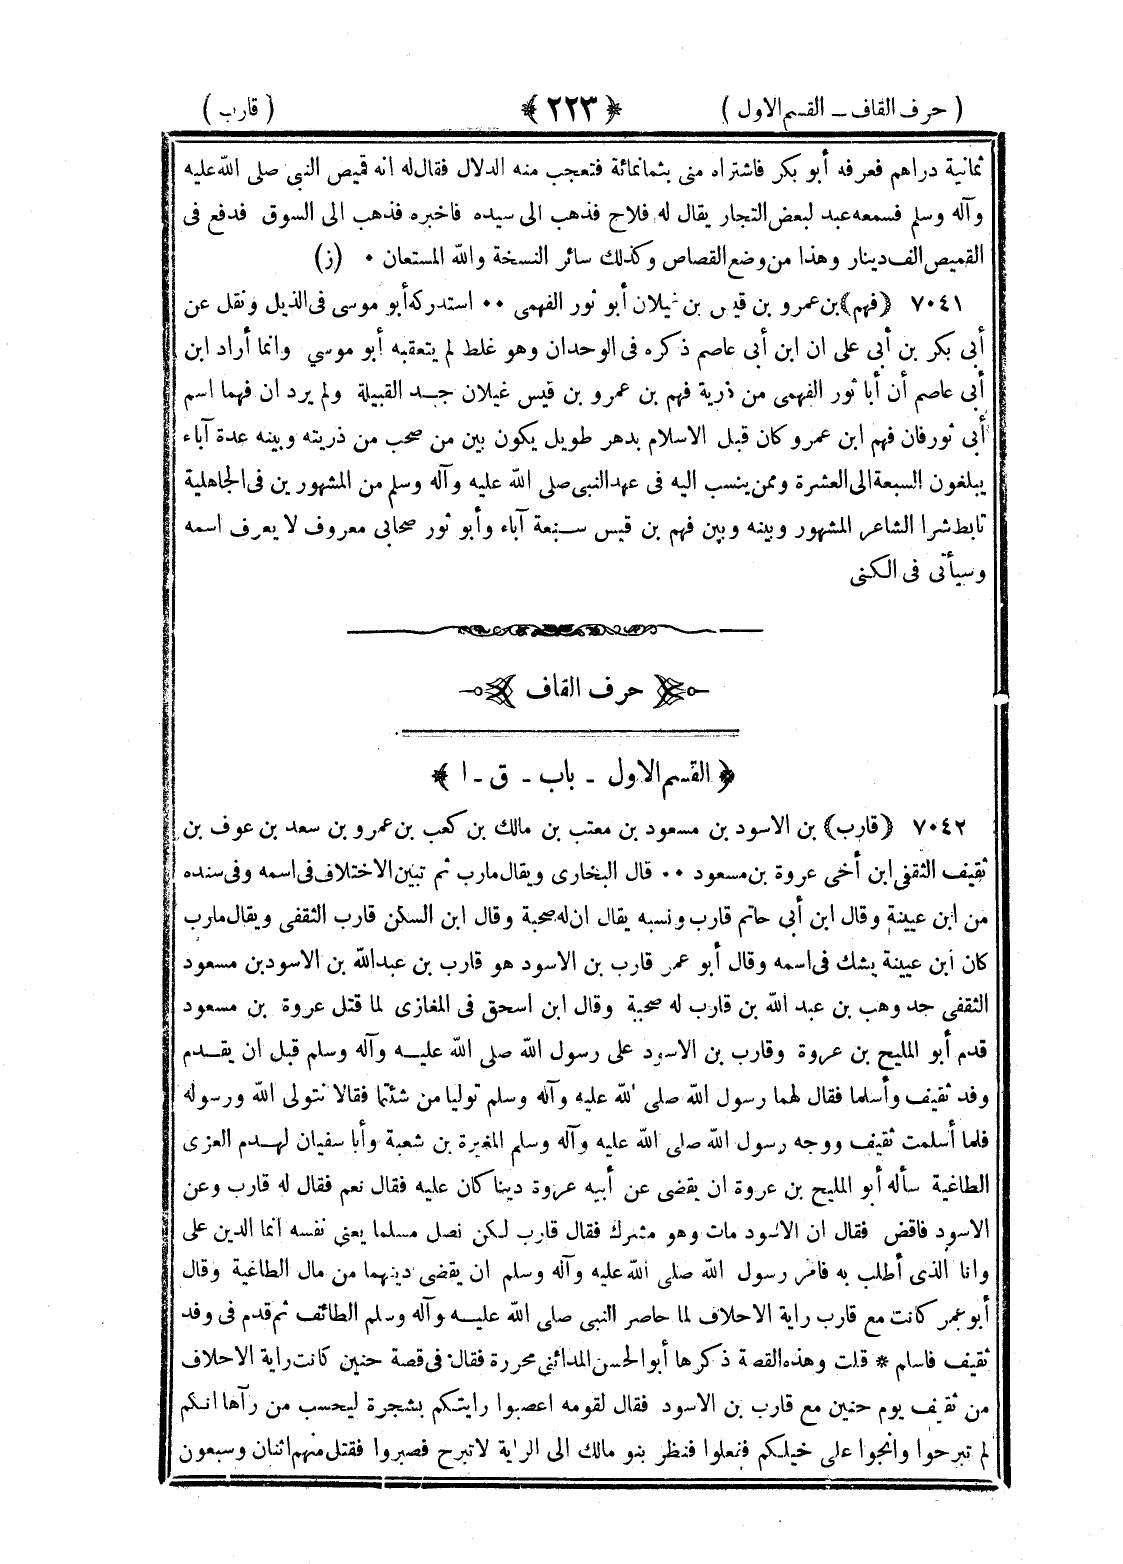 ( حرف القاف ــ القسم الاول ) ﴿ ٢٢٣ ﴾ ( قارب )
ثمانية دراهم فعرفه أبو بكر فاشتراه منى بثمانمائة فتعجب منه الدلال فقال له انه قميص النبى صلى الله عليه
وآله وسلم فسمعه عبد لبعض التجار يقال له فلاح فذهب الى سيده فاخبره فذهب الى السوق فدفع فى
القميص الف دينار وهذا من وضع القصاص وكذلك سائر النسخة والله المستعان ٠ (ز)
٧٠٤١ ﴿فهم﴾ بن عمرو بن قيس بن غيلان أبو ثور الفهمى ٠٠ استدركه أبو موسى فى الذيل ونقل عن
أبى بكر بن أبى على ان ابن أبى عاصم ذكره فى الوحدان وهو غلط لم يتعقبه أبو موسي وانما أراد ابن
أبى عاصم أن أبا ثور الفهمى من ذرية فهم بن عمرو بن قيس غيلان جد القبيلة ولم يرد ان فهما اسم
أبى ثور فان فهم ابن عمرو كان قبل الاسلام بدهر طويل يكون بين من صحب من ذريته وبينه عدة آباء
يبلغون السبعة الى العشرة وممن ينسب اليه فى عهد النبى صلى الله عليه وآله وسلم من المشهورين فى الجاهلية
تابط شرا الشاعر المشهور وبينه وبين فهم بن قيس سبعة آباء وأبو ثور صحابى معروف لا يعرف اسمه
وسيأتى فى الكنى
حرف القاف
﴿ القسم الاول - باب - ق - ا ﴾
٧٠٤٢ ﴿قارب﴾ بن الاسود بن مسعود بن معتب بن مالك بن كعب بن عمرو بن سعد بن عوف بن
ثقيف الثقفى ابن أخى عروة بن مسعود ٠٠ قال البخارى ويقال مارب ثم تبين الاختلاف فى اسمه وفى سنده
من ابن عيينة وقال ابن أبى حاتم قارب ونسبه يقال ان له صحبة وقال ابن السكن قارب الثقفى ويقال مارب
كان ابن عيينة يشك فى اسمه وقال أبو عمر قارب بن الاسود هو قارب بن عبدالله بن الاسود بن مسعود
الثقفى جد وهب بن عبد الله بن قارب له صحبة وقال ابن اسحق فى المغازى لما قتل عروة بن مسعود
قدم أبو المليح بن عروة وقارب بن الاسود على رسول الله صلى الله عليه وآله وسلم قبل ان يقدم
وفد ثقيف وأسلما فقال لهما رسول الله صلى الله عليه وآله وسلم توليا من شئتما فقالا نتولى الله ورسوله
فلما أسلمت ثقيف ووجه رسول الله صلى الله عليه وآله وسلم المغيرة بن شعبة وأبا سفيان لهدم العزى
الطاغية سأله أبو المليح بن عروة ان يقضى عن أبيه عروة دينا كان عليه فقال نعم فقال له قارب وعن
الاسود فاقض فقال ان الاسود مات وهو مشرك فقال قارب لكن نصل مسلما يعني نفسه انما الدين على
وانا الذى أطلب به فامر رسول الله صلى الله عليه وآله وسلم ان يقضى دينهما من مال الطاغية وقال
أبو عمر كانت مع قارب راية الاحلاف لما حاصر النبى صلى الله عليه وآله وسلم الطائف ثم قدم فى وفد
ثقيف فاسلم * قلت وهذه القصة ذكرها أبو الحسن المدائني محررة فقال فى قصة حنين كانت راية الاحلاف
من ثقيف يوم حنين مع قارب بن الاسود فقال لقومه اعصبوا رايتكم بشجرة ليحسب من رآها انكم
لم تبرحوا وانجوا على خيلكم ففعلوا فنظر بنو مالك الى الراية لاتبرح فصبروا فقتل منهم اثنان وسبعون